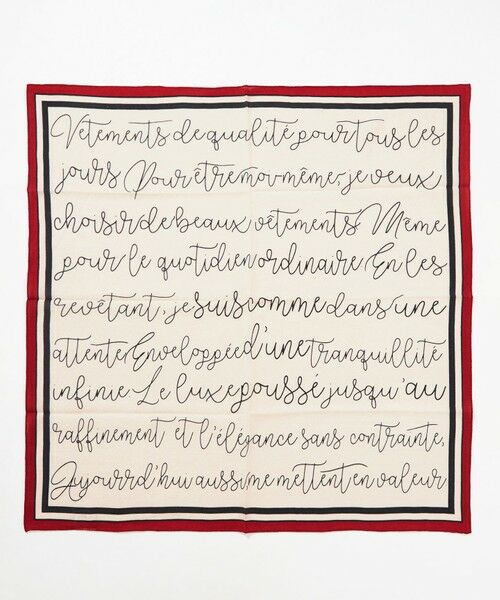 Vêtements de qualité pour tous les
jours Pour être moi-même, je veux
choisir de beaux vêtements Même
pour le quotidien ordinaire. En les
revêtant, je suis comme dans une
attente Enveloppée d'une tranquillité
infinie Le luxe poussé jusqu'au
raffinement et l'élégance sans contrainte,
Aujourrd'hui aussi me mettent en valeur